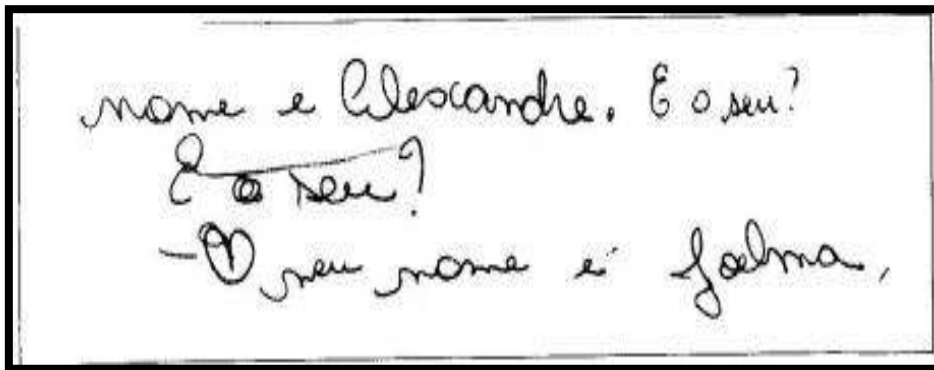 nome e Alexandre. E o seu?
E o seu?
- O meu nome é Joelma,